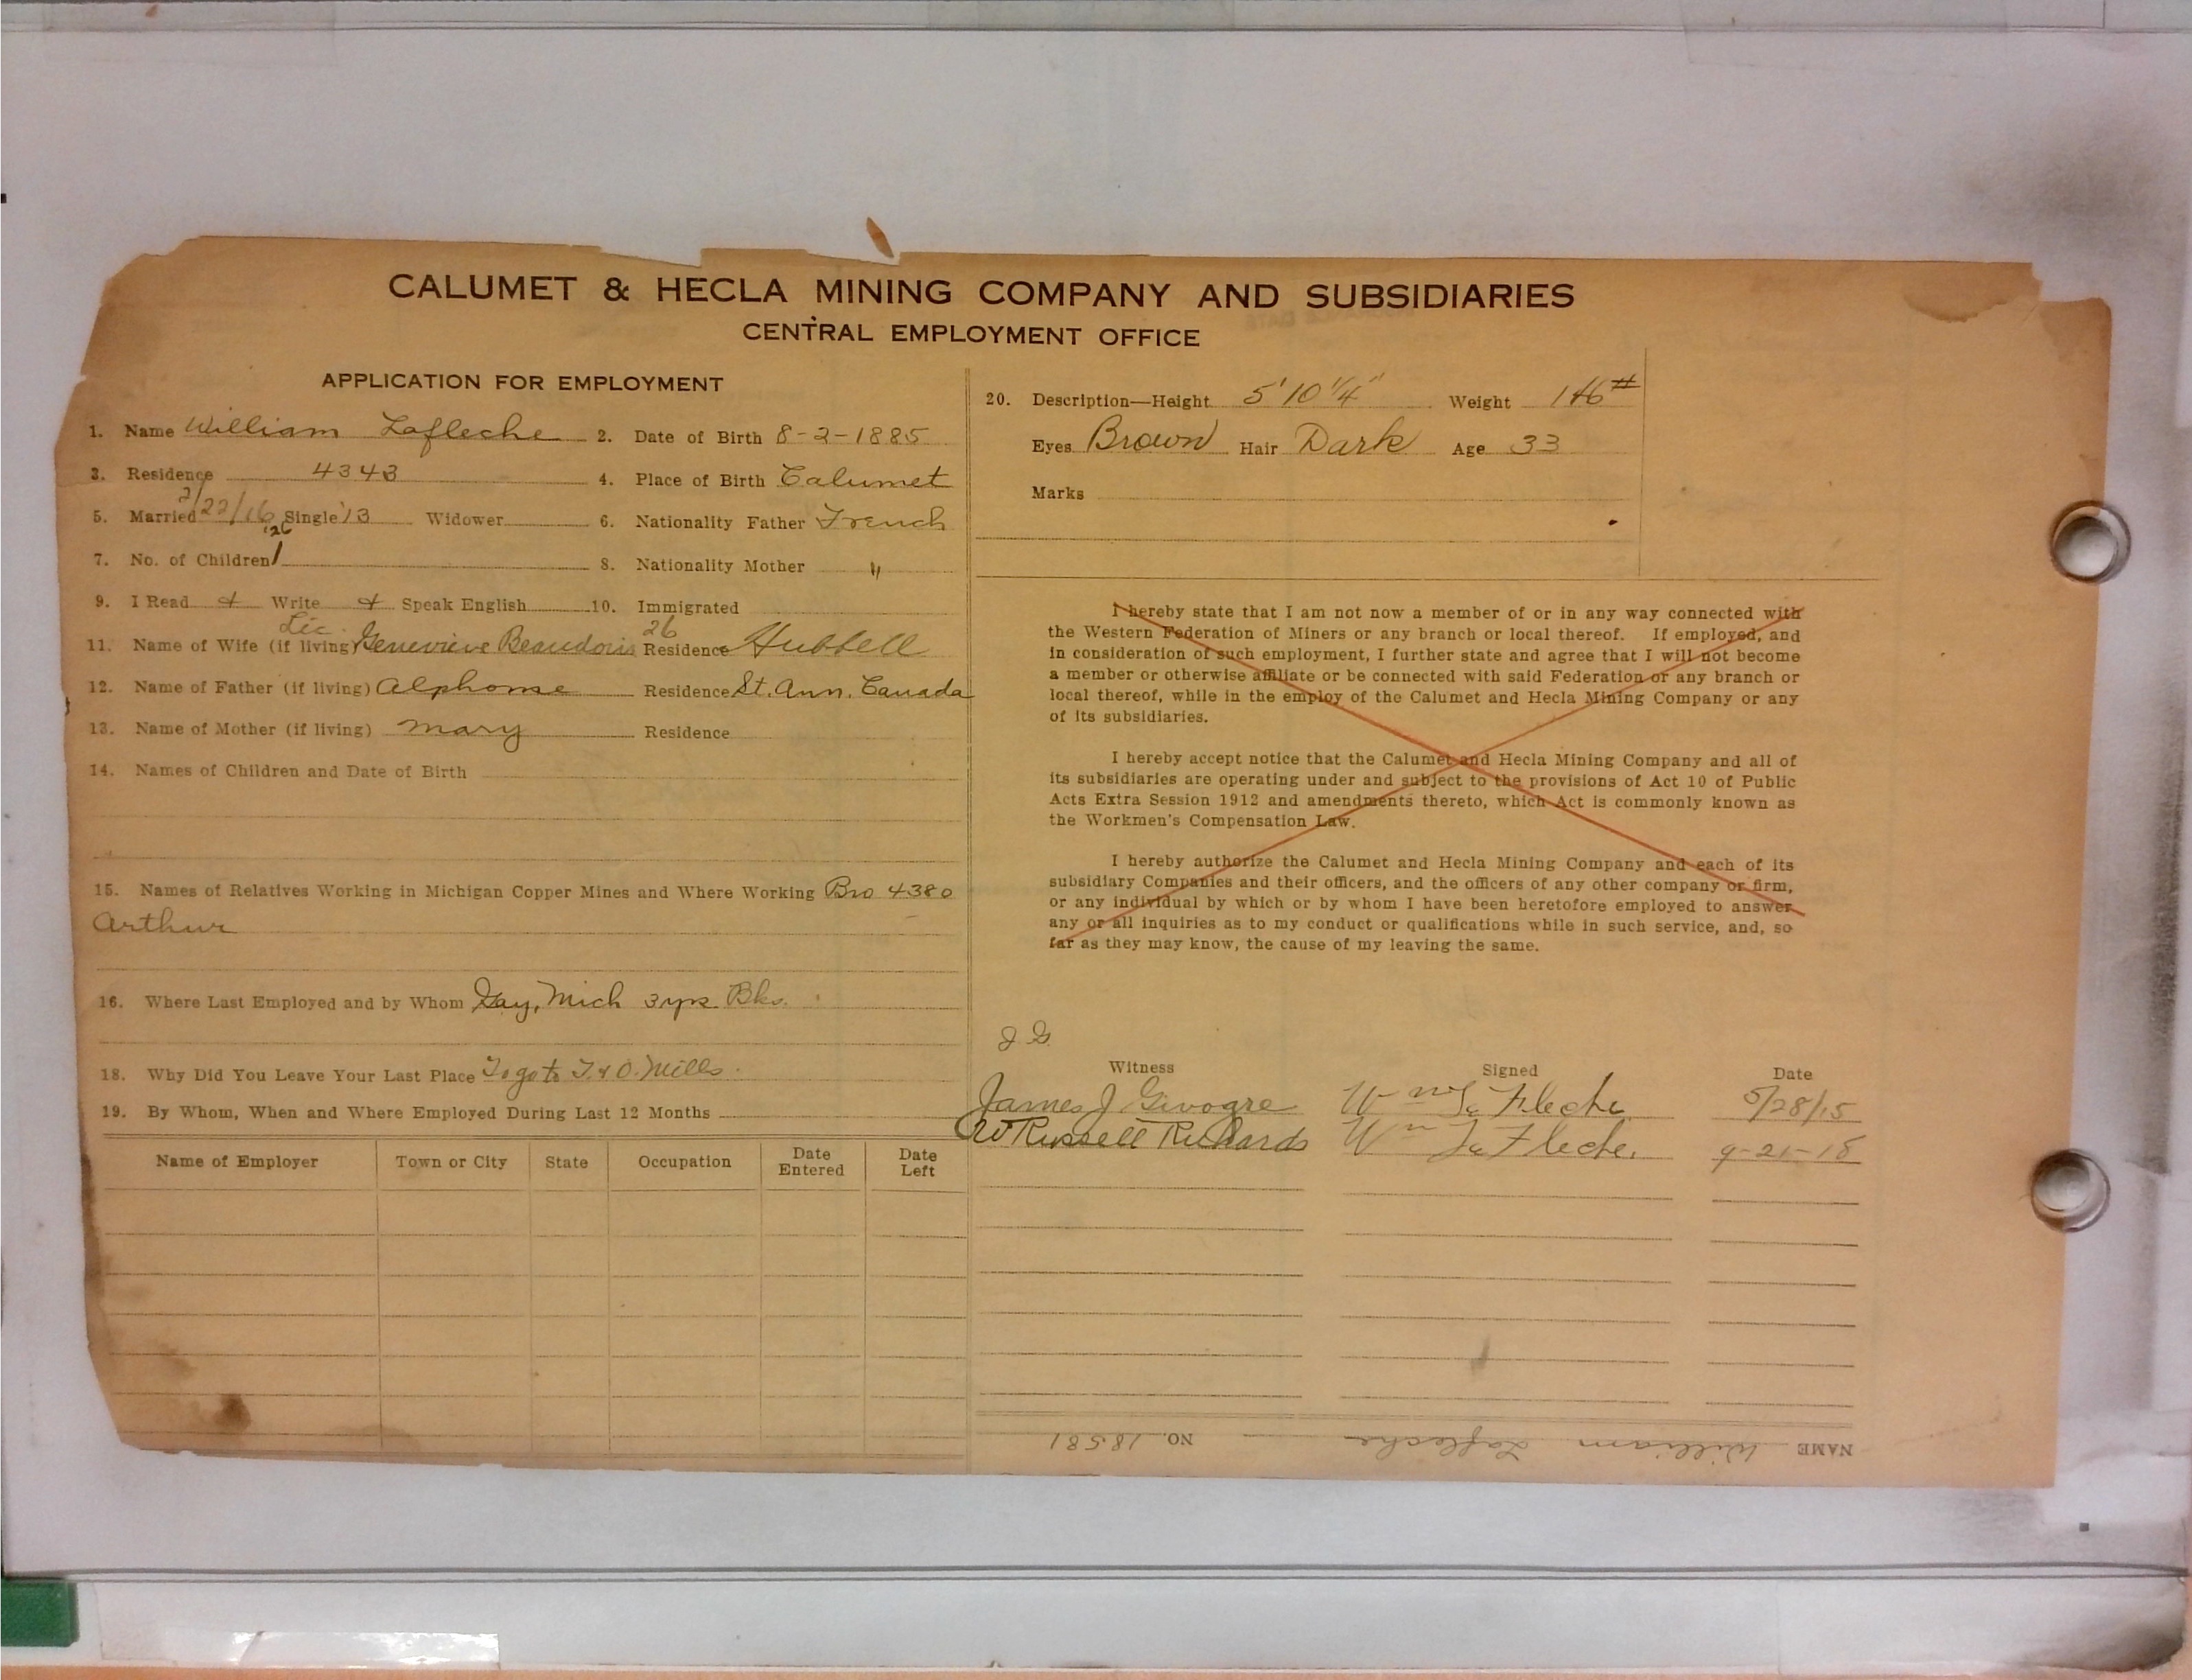 CALUMET & HECLA MINING COMPANY AND SUBSIDIARIES
CENTRAL EMPLOYMENT OFFICE
APPLICATION FOR EMPLOYMENT
1. Name William Lafleche 2. Date of Birth 8-2-1885
3. Residence 4343 4. Place of Birth Calumet
5. Married 2/22/16 Single '13 Widower 6. Nationality Father French
'26
7. No. of Children 1 8. Nationality Mother "
9. I Read & Write & Speak English 10. Immigrated
Lic. 26
11. Name of Wife (if living) Genevieve Beaudoin Residence Hubbell
12. Name of Father (if living) Alphonse Residence St. Ann. Canada
13. Name of Mother (if living) Mary Residence
14. Names of Children and Date of Birth
15. Names of Relatives Working in Michigan Copper Mines and Where Working Bro 4380
Arthur
16. Where Last Employed and by Whom Gay, Mich 3 yrs Bks.
18. Why Did You Leave Your Last Place To go to T. & O. Mills.
19. By Whom, When and Where Employed During Last 12 Months
Name of Employer Town or City State Occupation Date Entered Date Left
20. Description—Height 5' 10 1/4" Weight 146 #
Eyes Brown Hair Dark Age 33
Marks
I hereby state that I am not now a member of or in any way connected with
the Western Federation of Miners or any branch or local thereof. If employed, and
in consideration of such employment, I further state and agree that I will not become
a member or otherwise affiliate or be connected with said Federation or any branch or
local thereof, while in the employ of the Calumet and Hecla Mining Company or any
of its subsidiaries.
I hereby accept notice that the Calumet and Hecla Mining Company and all of
its subsidiaries are operating under and subject to the provisions of Act 10 of Public
Acts Extra Session 1912 and amendments thereto, which Act is commonly known as
the Workmen's Compensation Law.
I hereby authorize the Calumet and Hecla Mining Company and each of its
subsidiary Companies and their officers, and the officers of any other company or firm,
or any individual by which or by whom I have been heretofore employed to answer
any or all inquiries as to my conduct or qualifications while in such service, and, so
far as they may know, the cause of my leaving the same.
J G.
Witness Signed Date
James J Givogre Wm La Fleche 5/28/15
W Russell Richards Wm La Fleche. 9-21-18
NAME William Lafleche NO. 18581